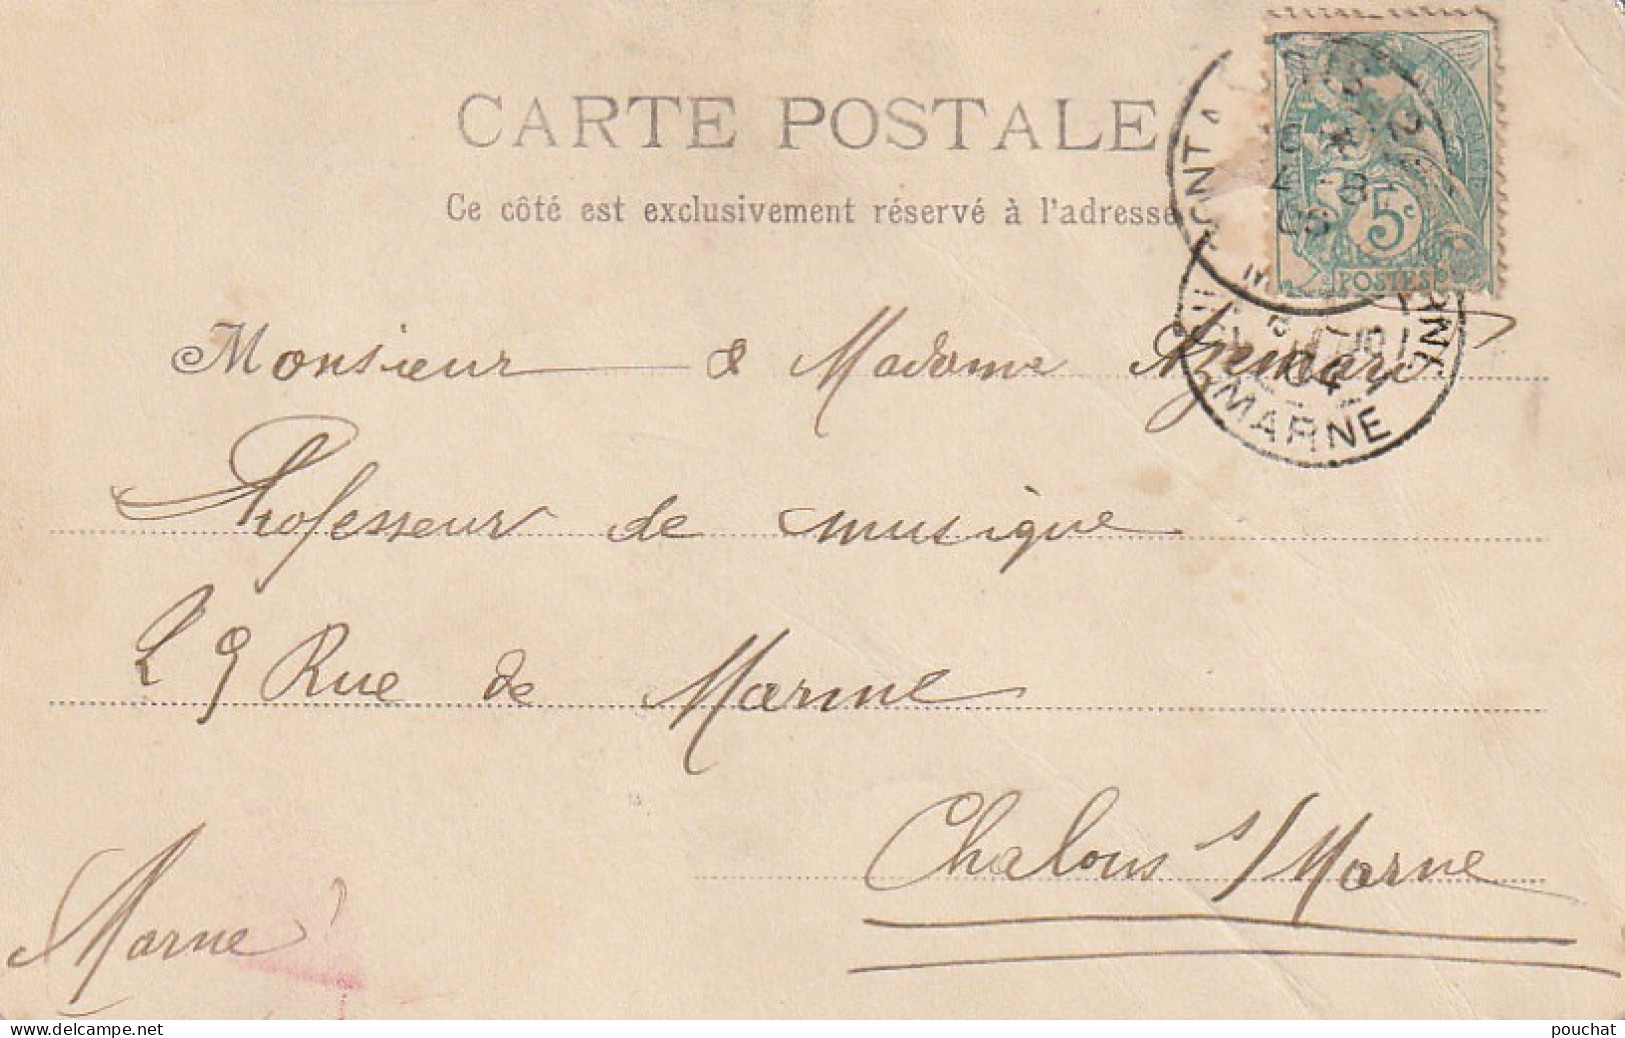 CARTE POSTALE
Ce côté est exclusivement réservé à l'adresse
5c
POSTES
MARNE
04
Monsieur & Madame Azemar
Professeur de musique
29 Rue de Marne
Chalons s/Marne
Marne
pouchat
www.delcampe.net